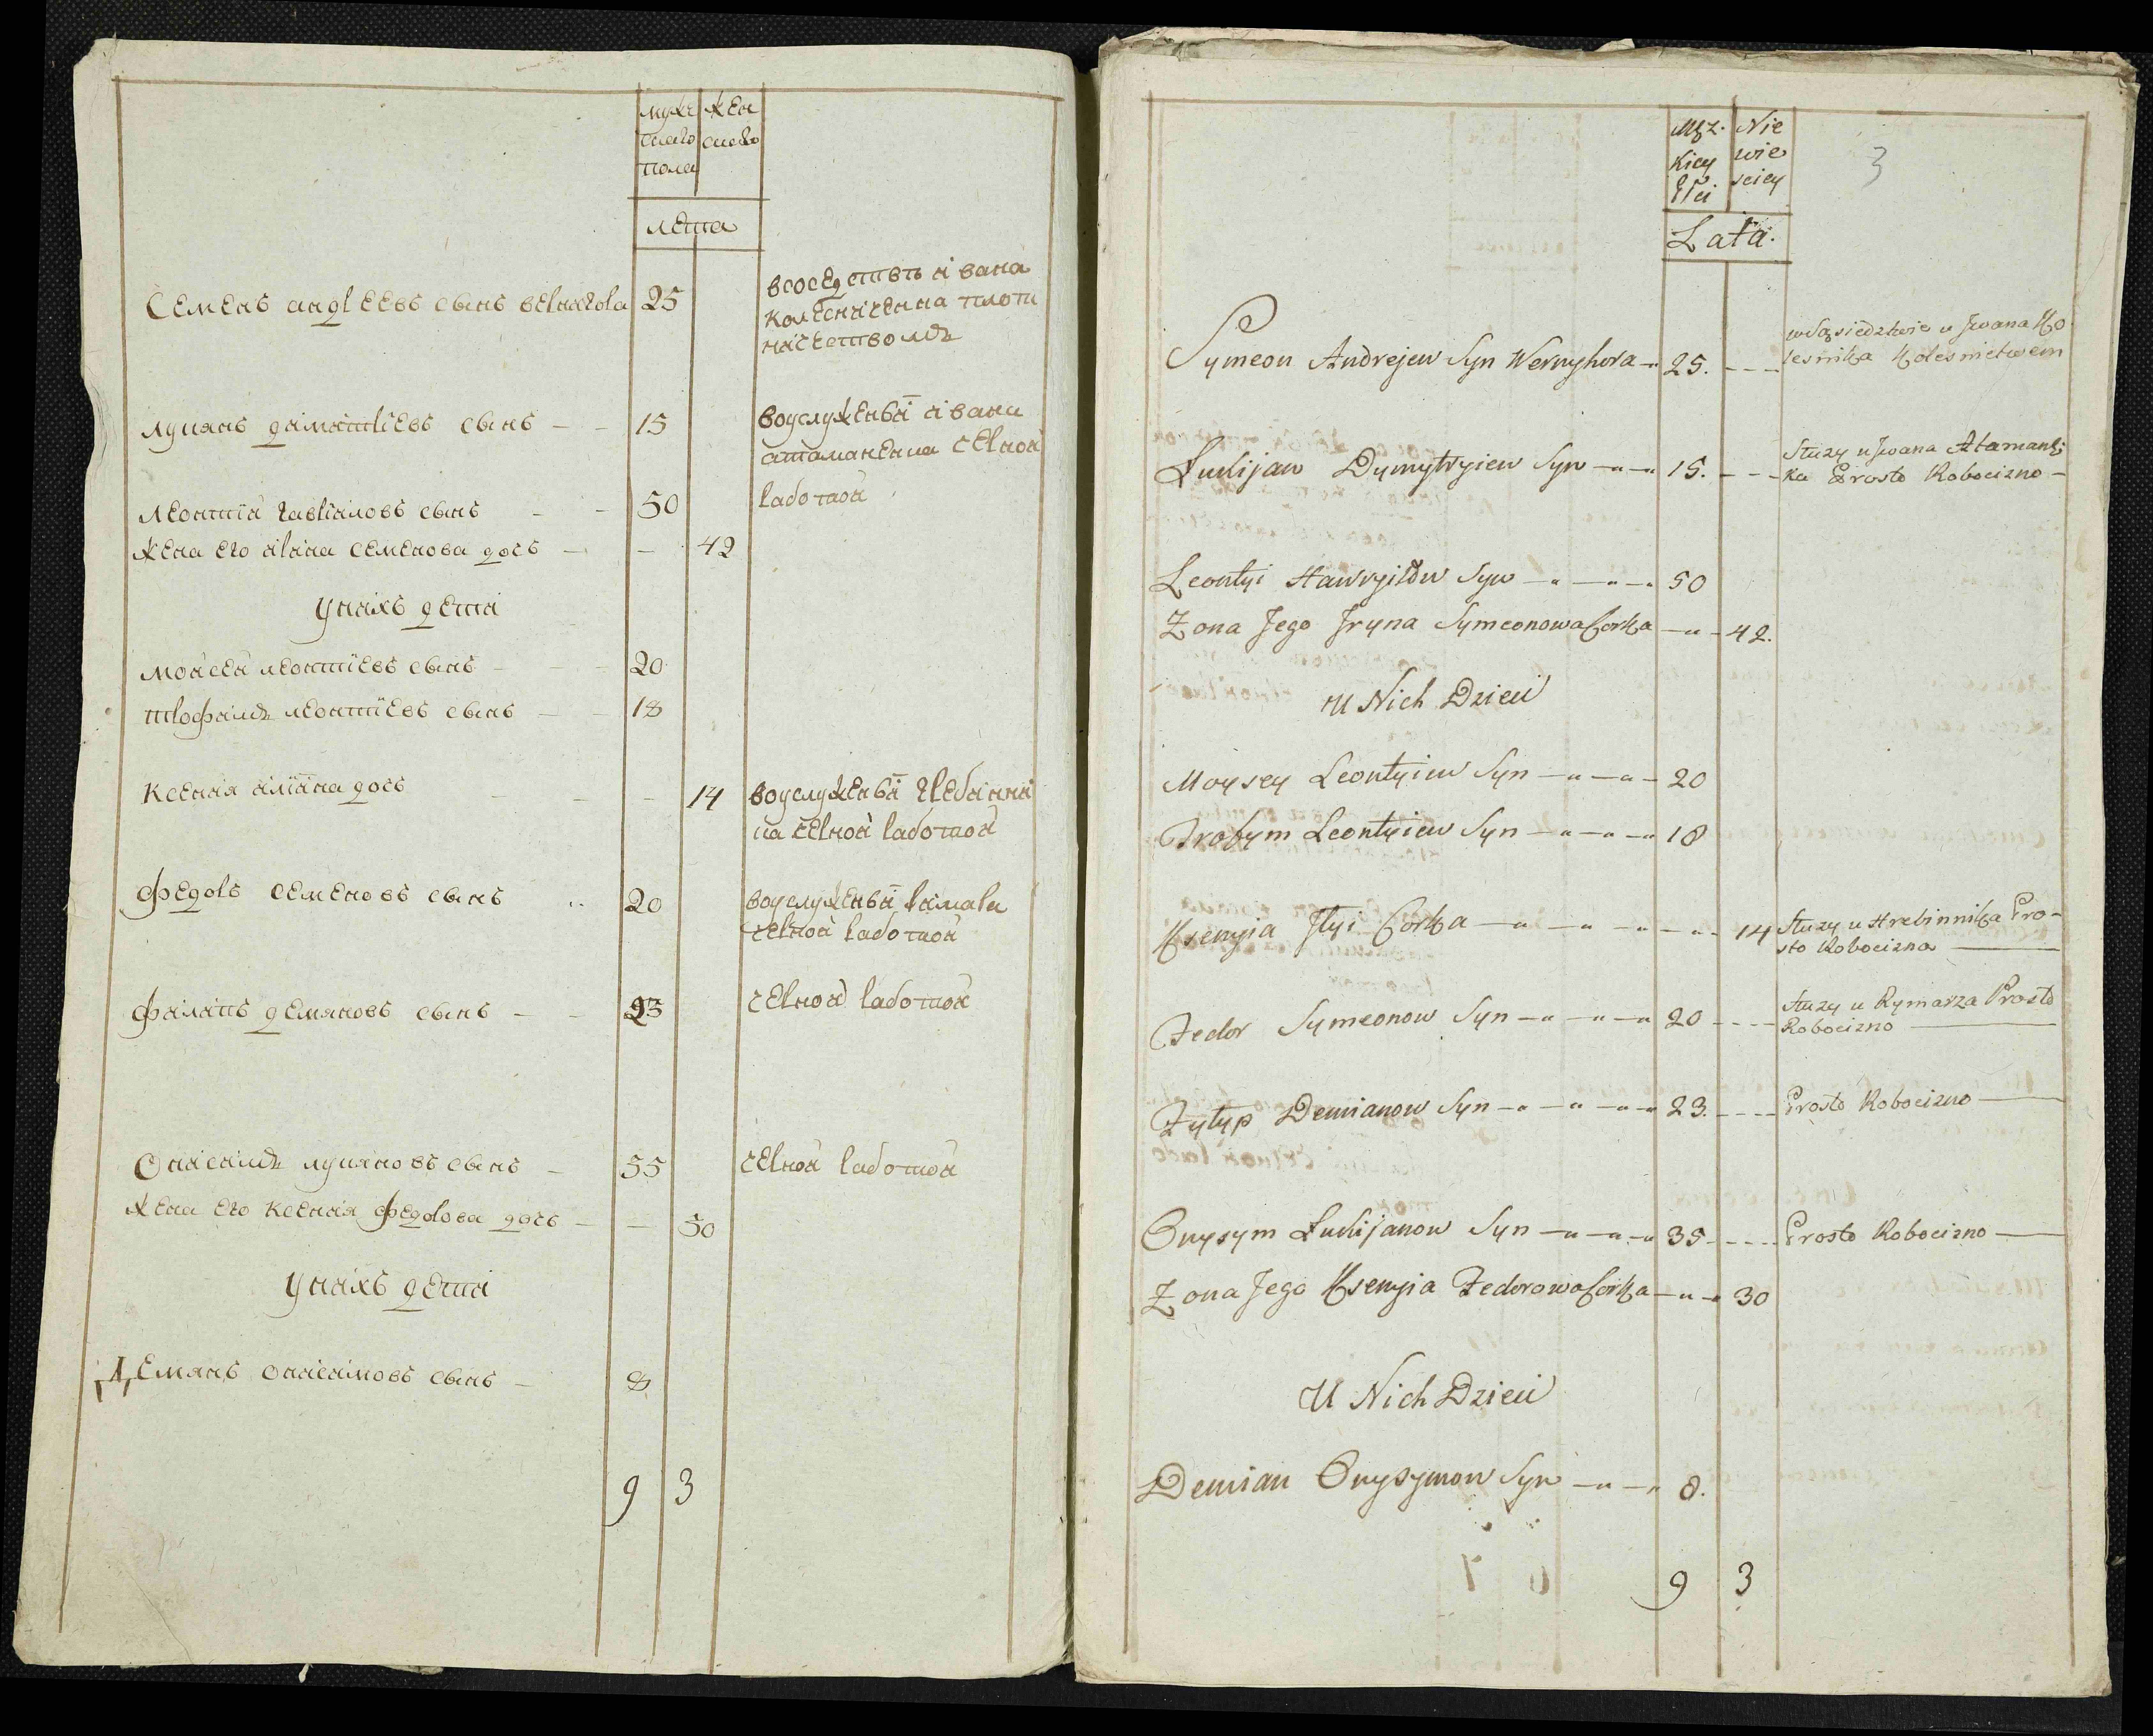 муже жен
скаго скаго
пола
лета
Семенъ андреевъ сынъ вернигора 25 всоседствѣ ивана
колесниченка плоти
ничеством
лукянъ димитріевъ сынъ — — 15 воуслуженіи ивана
атаманенка черной
работой
леонтій гавриловъ сынъ — — 50
жена его ирина семенова дочь — — 42
У них дети
мойсей леонтіевъ сынъ — — — 20
трофим леонтіевъ сынъ — — 18
Ксенія иліина дочь — — — 14 воуслуженіи гребінни
ка черной работой
Федоръ семеновъ сынъ 20 воуслуженіи римара
черной работой
филипъ демяновъ сынъ — — 23 черной работой
Онисим лукяновъ сынъ — 55 черной работой
жена его Ксенія Федорова дочь — — 50
У них дети
Демянъ онисимовъ сынъ — 8
9 3
Męz. Nie
kiey wie
Płci sciey
3
Lata.
Symeon Andrejew Syn Wernyhora — 25. - - - w Sąsiedztwie u Jwana Ko
lesnika Kolesnictwem
Łukijan Dymytryiew Syn — — 15. - - - Służy u Jwana Ataman
ka Prosto Robocizno —
Leontyi Hawryiłow Syn — — — 50
Zona Jego Jryna Symeonowa Corka — — 42.
U Nich Dzieci
Moysey Leontyiew Syn — — — 20
Trofym Leontyiew Syn — — — 18
Ksenyia Jlyi Corka — — — — — 14 Służy u Hrebinnika Pro-
sto Robocizna —
Fedor Symeonow Syn — — — 20 - - - Służy u Rymarza Prosto
Robocizno —
Fyłyp Demianow Syn — — — 23. - - - Prosto Robocizno —
Onysym Łukijanow Syn — — — 35 - - - Prosto Robocizno —
Zona Jego Ksenyia Fedorowa Corka — — 30
U Nich Dzieci
Demian Onysymow Syn — — 8.
9 3